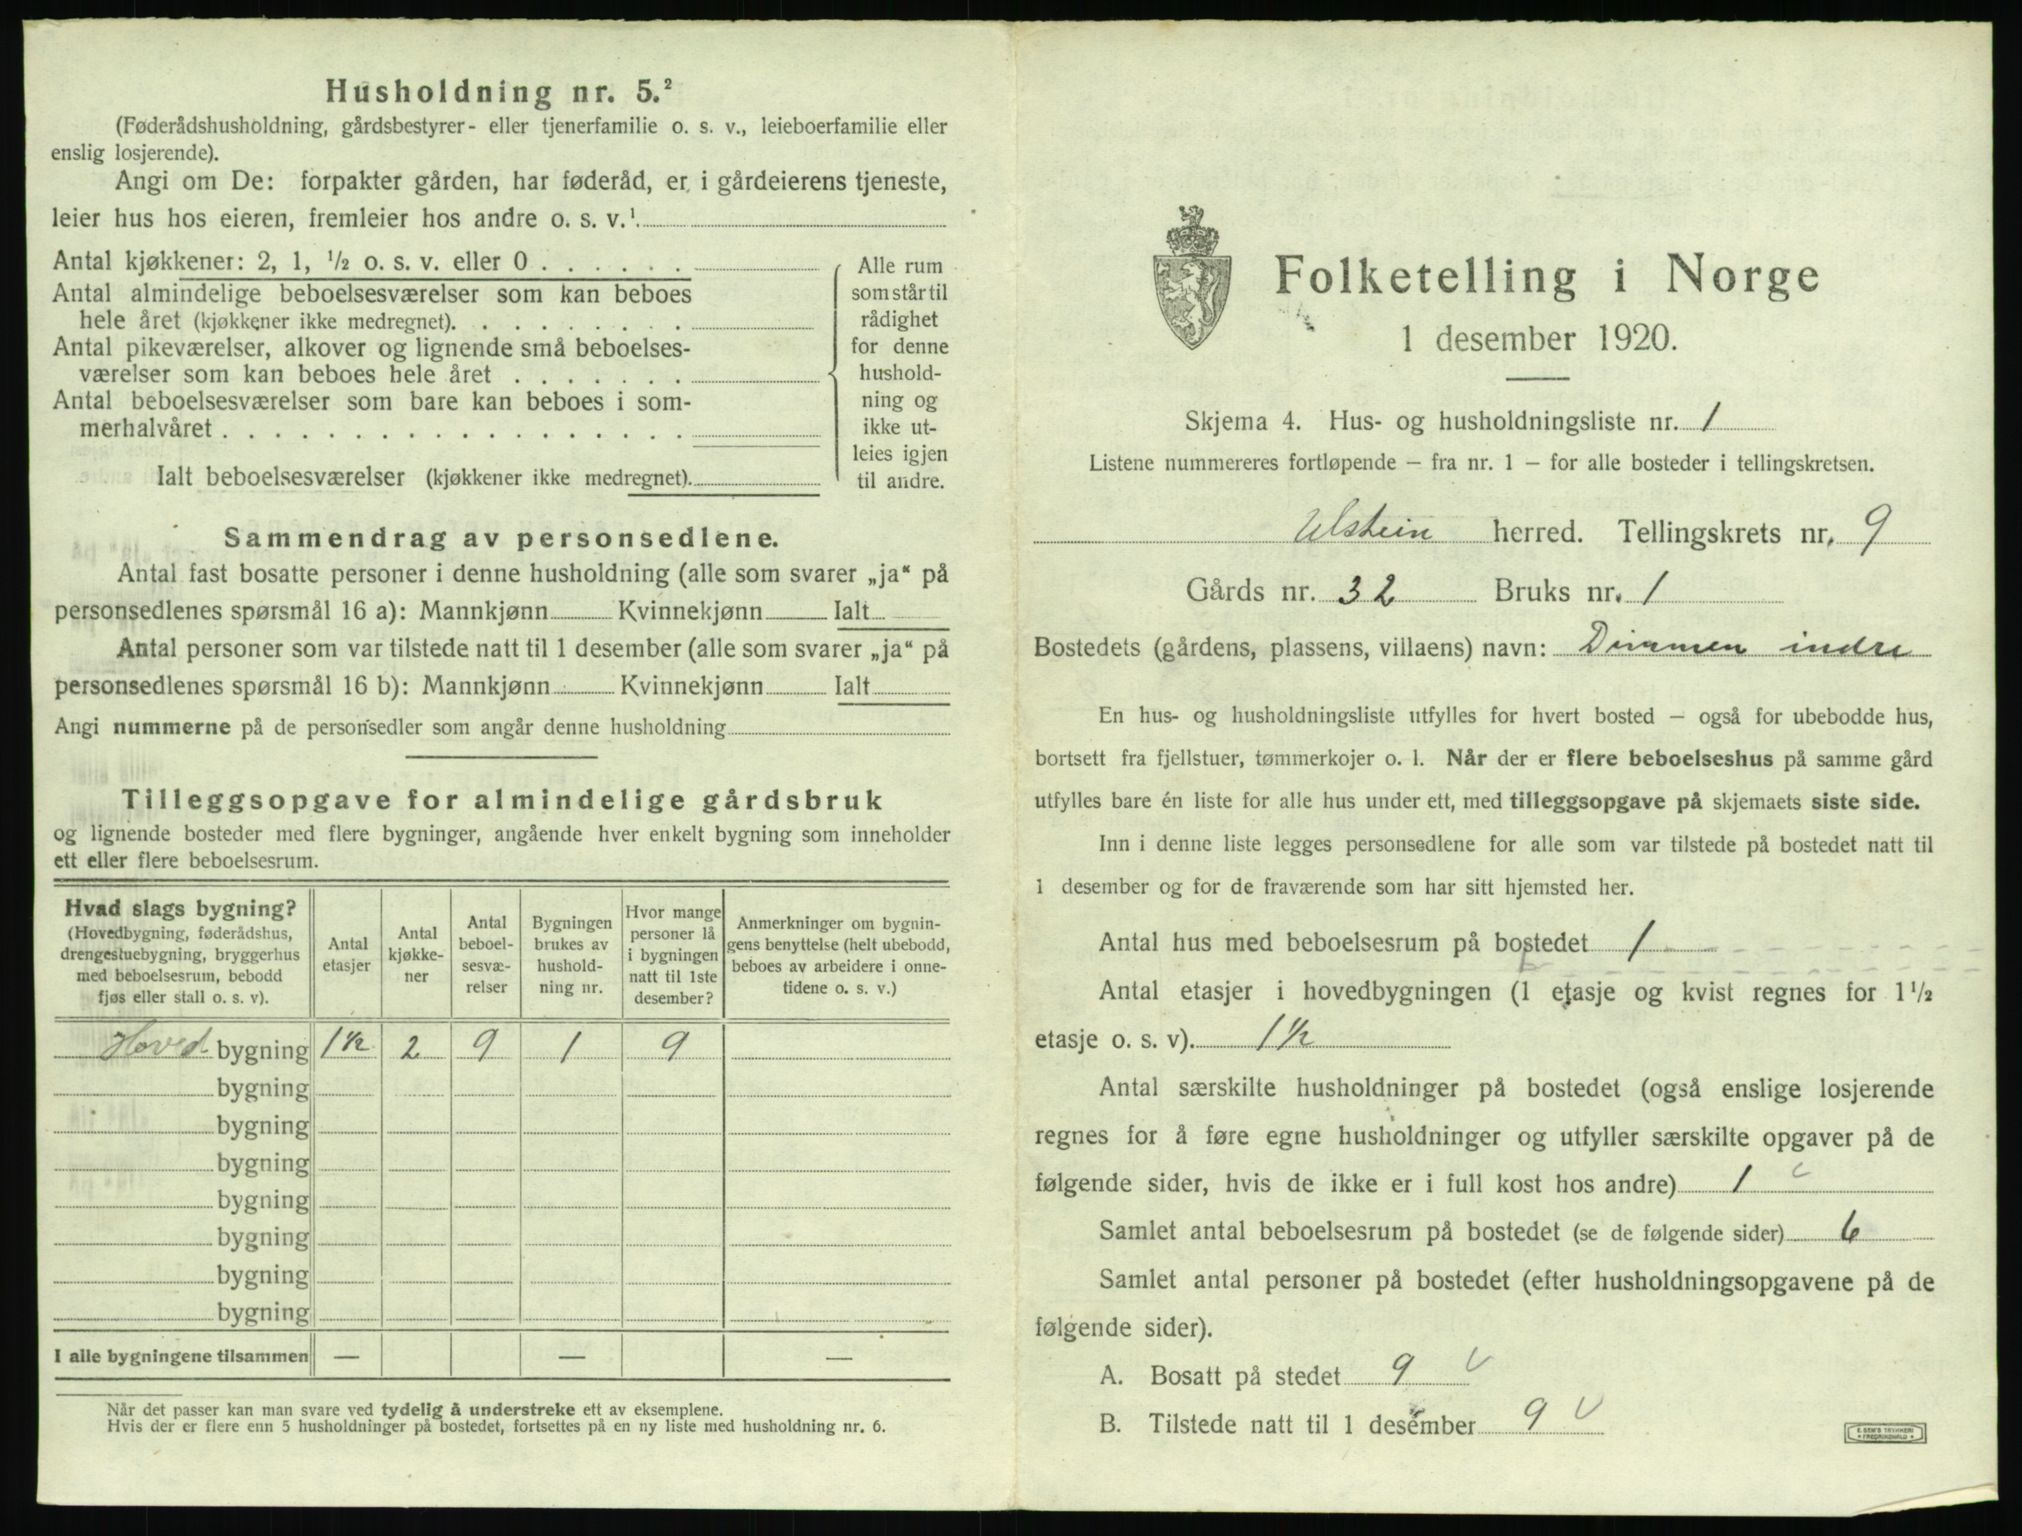 Husholdning nr. 5.²
(Føderådshusholdning, gårdsbestyrer- eller tjenerfamilie o. s. v., leieboerfamilie eller
enslig losjerende).
Angi om De: forpakter gården, har føderåd, er i gårdeierens tjeneste,
leier hus hos eieren, fremleier hos andre o. s. v.¹
Antal kjøkkener: 2, 1, ½ o. s. v. eller 0
Antal almindelige beboelsesværelser som kan beboes
hele året (kjøkkener ikke medregnet).
Antal pikeværelser, alkover og lignende små beboelses-
værelser som kan beboes hele året
Antal beboelsesværelser som bare kan beboes i som-
merhalvåret
Ialt beboelsesværelser (kjøkkener ikke medregnet).
Alle rum
som står til
rådighet
for denne
hushold-
ning og
ikke ut-
leies igjen
til andre.
Sammendrag av personsedlene.
Antal fast bosatte personer i denne husholdning (alle som svarer „ja“ på
personsedlenes spørsmål 16 a): Mannkjønn Kvinnekjønn Ialt
Antal personer som var tilstede natt til 1 desember (alle som svarer „ja“ på
personsedlenes spørsmål 16 b): Mannkjønn Kvinnekjønn Ialt
Angi nummerne på de personsedler som angår denne husholdning
Tilleggsopgave for almindelige gårdsbruk
og lignende bosteder med flere bygninger, angående hver enkelt bygning som inneholder
ett eller flere beboelsesrum.
Hvad slags bygning?
(Hovedbygning, føderådshus,
drengestuebygning, bryggerhus
med beboelsesrum, bebodd
fjøs eller stall o. s. v).
Antal
etasjer
Antal
kjøkke-
ner
Antal
beboel-
sesvæ-
relser
Bygningen
brukes av
hushold-
ning nr.
Hvor mange
personer lå
i bygningen
natt til 1ste
desember?
Anmerkninger om bygnin-
gens benyttelse (helt ubebodd,
beboes av arbeidere i onne-
tidene o. s. v.)
Hoved bygning 1½ 2 9 1 9
bygning
bygning
bygning
bygning
bygning
bygning
bygning
I alle bygningene tilsammen — — —
Når det passer kan man svare ved tydelig å understreke ett av eksemplene.
Hvis der er flere enn 5 husholdninger på bostedet, fortsettes på en ny liste med husholdning nr. 6.
Folketelling i Norge
1 desember 1920.
Skjema 4. Hus- og husholdningsliste nr. 1
Listene nummereres fortløpende – fra nr. 1 – for alle bosteder i tellingskretsen.
Ulstein herred. Tellingskrets nr. 9
Gårds nr. 32 Bruks nr. 1
Bostedets (gårdens, plassens, villaens) navn: Dimmen indre
En hus- og husholdningsliste utfylles for hvert bosted – også for ubebodde hus,
bortsett fra fjellstuer, tømmerkojer o. l. Når der er flere beboelseshus på samme gård
utfylles bare én liste for alle hus under ett, med tilleggsopgave på skjemaets siste side.
Inn i denne liste legges personsedlene for alle som var tilstede på bostedet natt til
1 desember og for de fraværende som har sitt hjemsted her.
Antal hus med beboelsesrum på bostedet 1
Antal etasjer i hovedbygningen (1 etasje og kvist regnes for 1½
etasje o. s. v). 1½
Antal særskilte husholdninger på bostedet (også enslige losjerende
regnes for å føre egne husholdninger og utfyller særskilte opgaver på de
følgende sider, hvis de ikke er i full kost hos andre) 1
Samlet antal beboelsesrum på bostedet (se de følgende sider) 6
Samlet antal personer på bostedet (efter husholdningsopgavene på de
følgende sider).
A. Bosatt på stedet 9
B. Tilstede natt til 1 desember 9